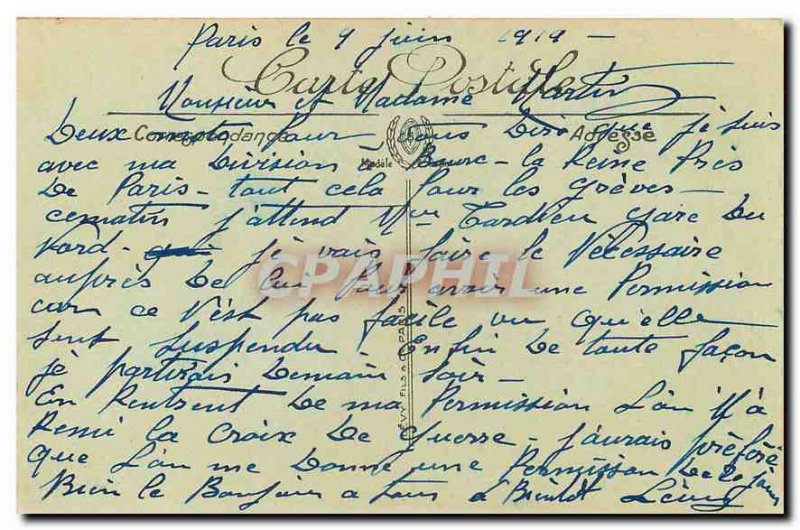 Paris le 9 juin 1919 -
Carte Postale
Monsieur et Madame Martin
Deux mots Pour vous Dire que je suis
Correspondance Adresse
avec ma Division a Bourc-la Reine Près
Modèle
De Paris - tout cela Pour les grèves -
ce matin j'attend Mr Tardieu gare du
Nord - je vais faire le Nécessaire
auprès De lui Pour avoir une Permission
car ce N'est pas facile vu qu'elle
sont suspendu - Enfin De toute façon
je partirais Demain Soir -
En Rentrent De ma Permission L'on M'a
Remi la Croix De guerre - j'aurais préféré
que L'on me Donne une Permission De 20 jours
Bien le Bonjour a tous a Bientôt
LÉVY FILS & Cie PARIS
CPAPHIL